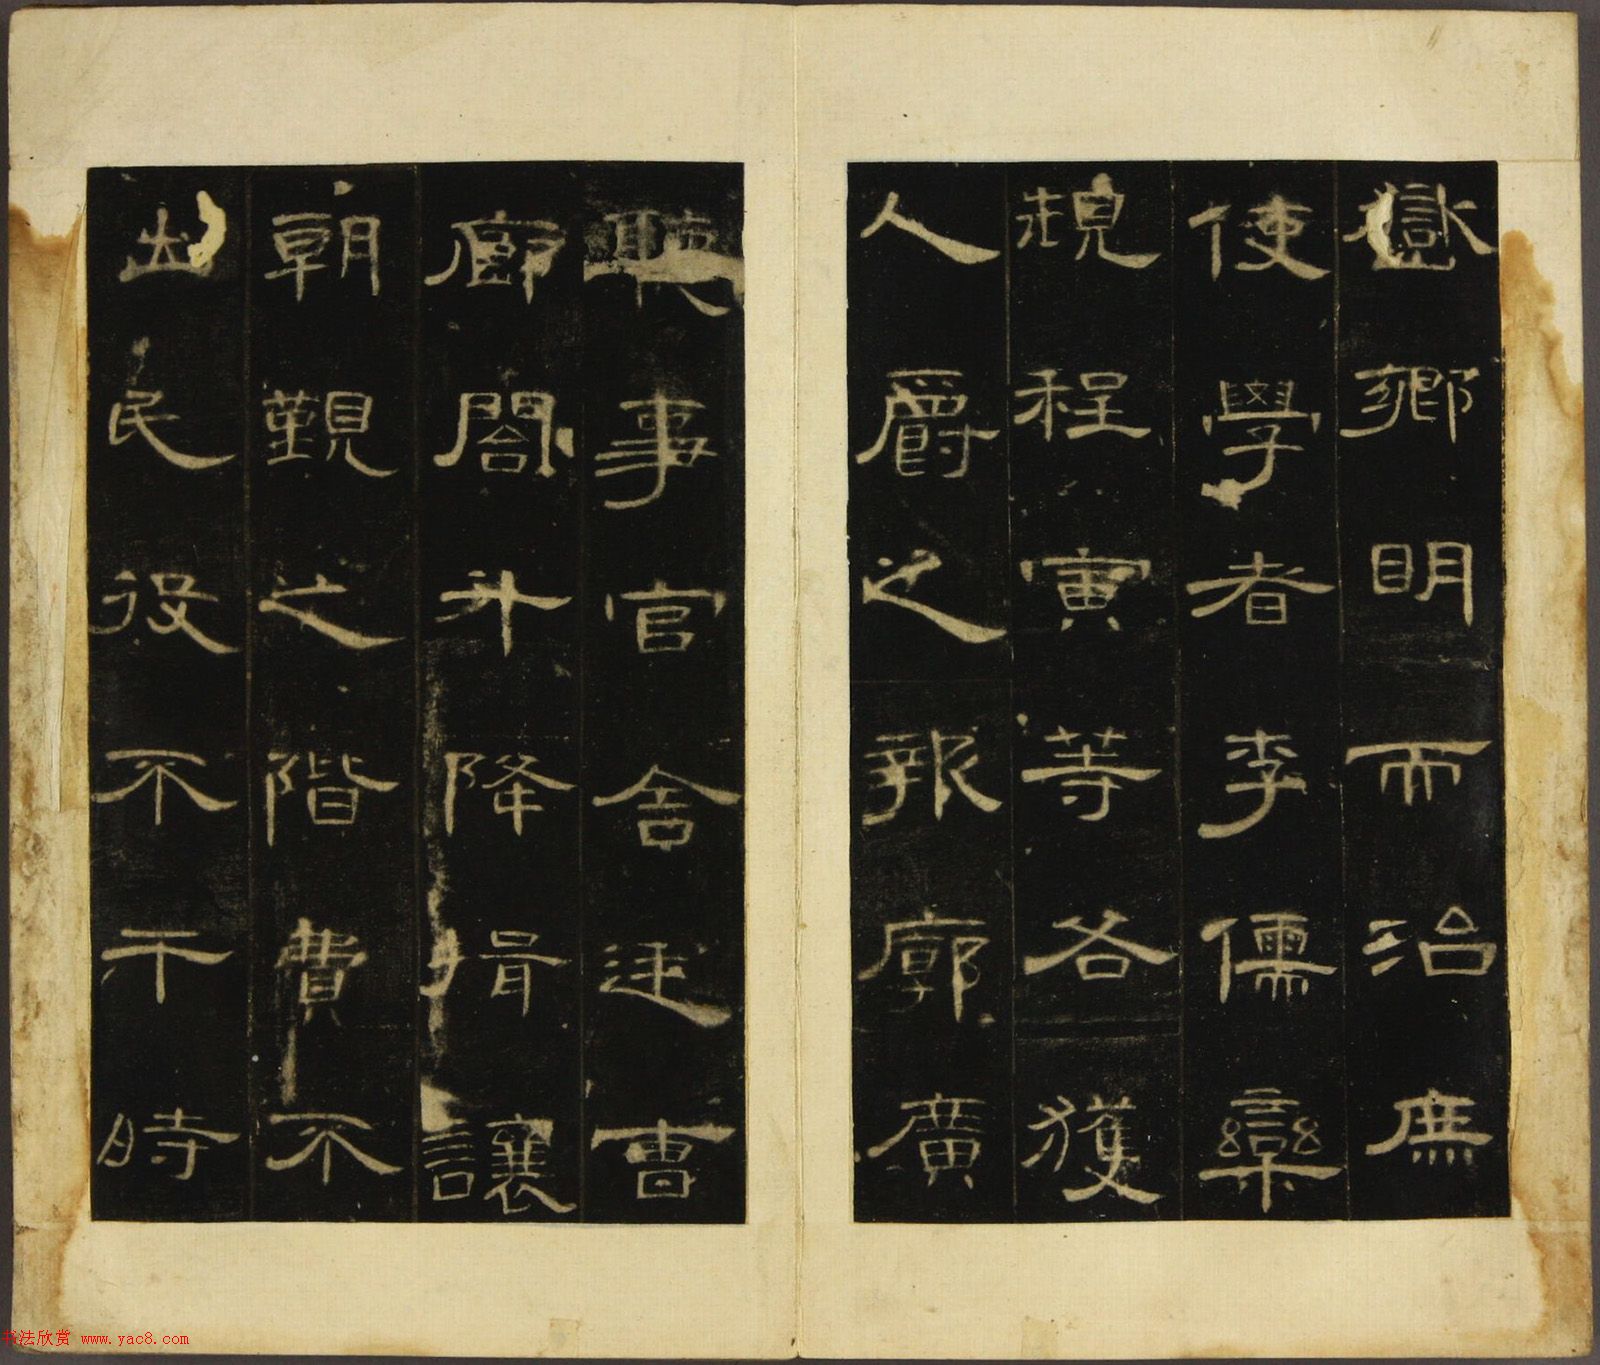 嚮明而治庶
使學者李儒欒
規程寅等各獲
人爵之報廓廣
聽事官舍廷曹
廊閤升降揖讓
朝覲之階費不
出民役不干時
书法欣赏 www.yac8.com